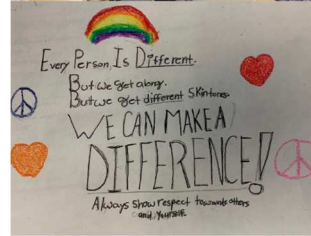 Every Person Is Different.
But we get along.
But we get different Skintones.
WE CAN MAKE A
DIFFERENCE!
Always show respect towards others
and Yourself